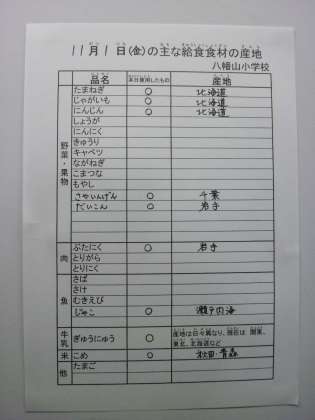 11月1日(金)の主な給食食材の産地
八幡山小学校
品名 本日使用したもの 産地
野菜・果物
たまねぎ ○ 北海道
じゃがいも ○ 北海道
にんじん ○ 北海道
しょうが
にんにく
きゅうり
キャベツ
ながねぎ
こまつな
もやし
さやいんげん ○ 千葉
だいこん ○ 岩手
肉
ぶたにく ○ 岩手
とりがら
とりにく
魚
さば
さけ
むきえび
じゃこ ○ 瀬戸内海
牛乳
ぎゅうにゅう ○ 産地は日々異なり、現在は 関東、
東北、北海道など
米 こめ ○ 秋田・青森
他 たまご